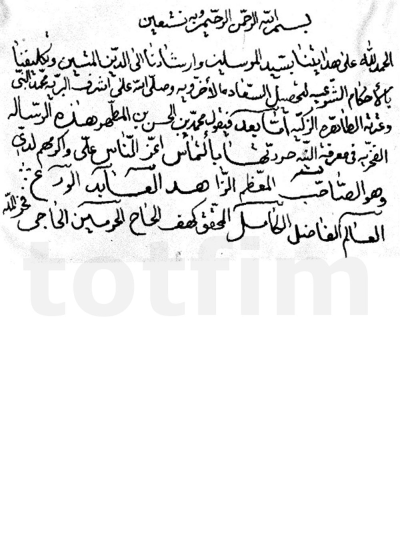 بسم الله الرحمن الرحيم وبه نستعين
الحمد لله على هدايتنا بسيد المرسلين وارشادنا الى الدين المتين وتكليفنا
بالأحكام الشرعية لتحصيل السعادة الأخروية وصلى الله على اشرف البرية محمد النبي
وعترته الطاهرة الزكية اما بعد فيقول محمد بن الحسن بن المطهر هذه الرسالة
الفخرية في معرفة النية حررتها بالتماس اعز الناس علي واكرمهم لدي
وهو الصاحب المعظم الزاهد العابد الورع
العالم الفاضل الكامل المحقق كهف الحاج والحرمين الحاجي فخر الملة
totfim